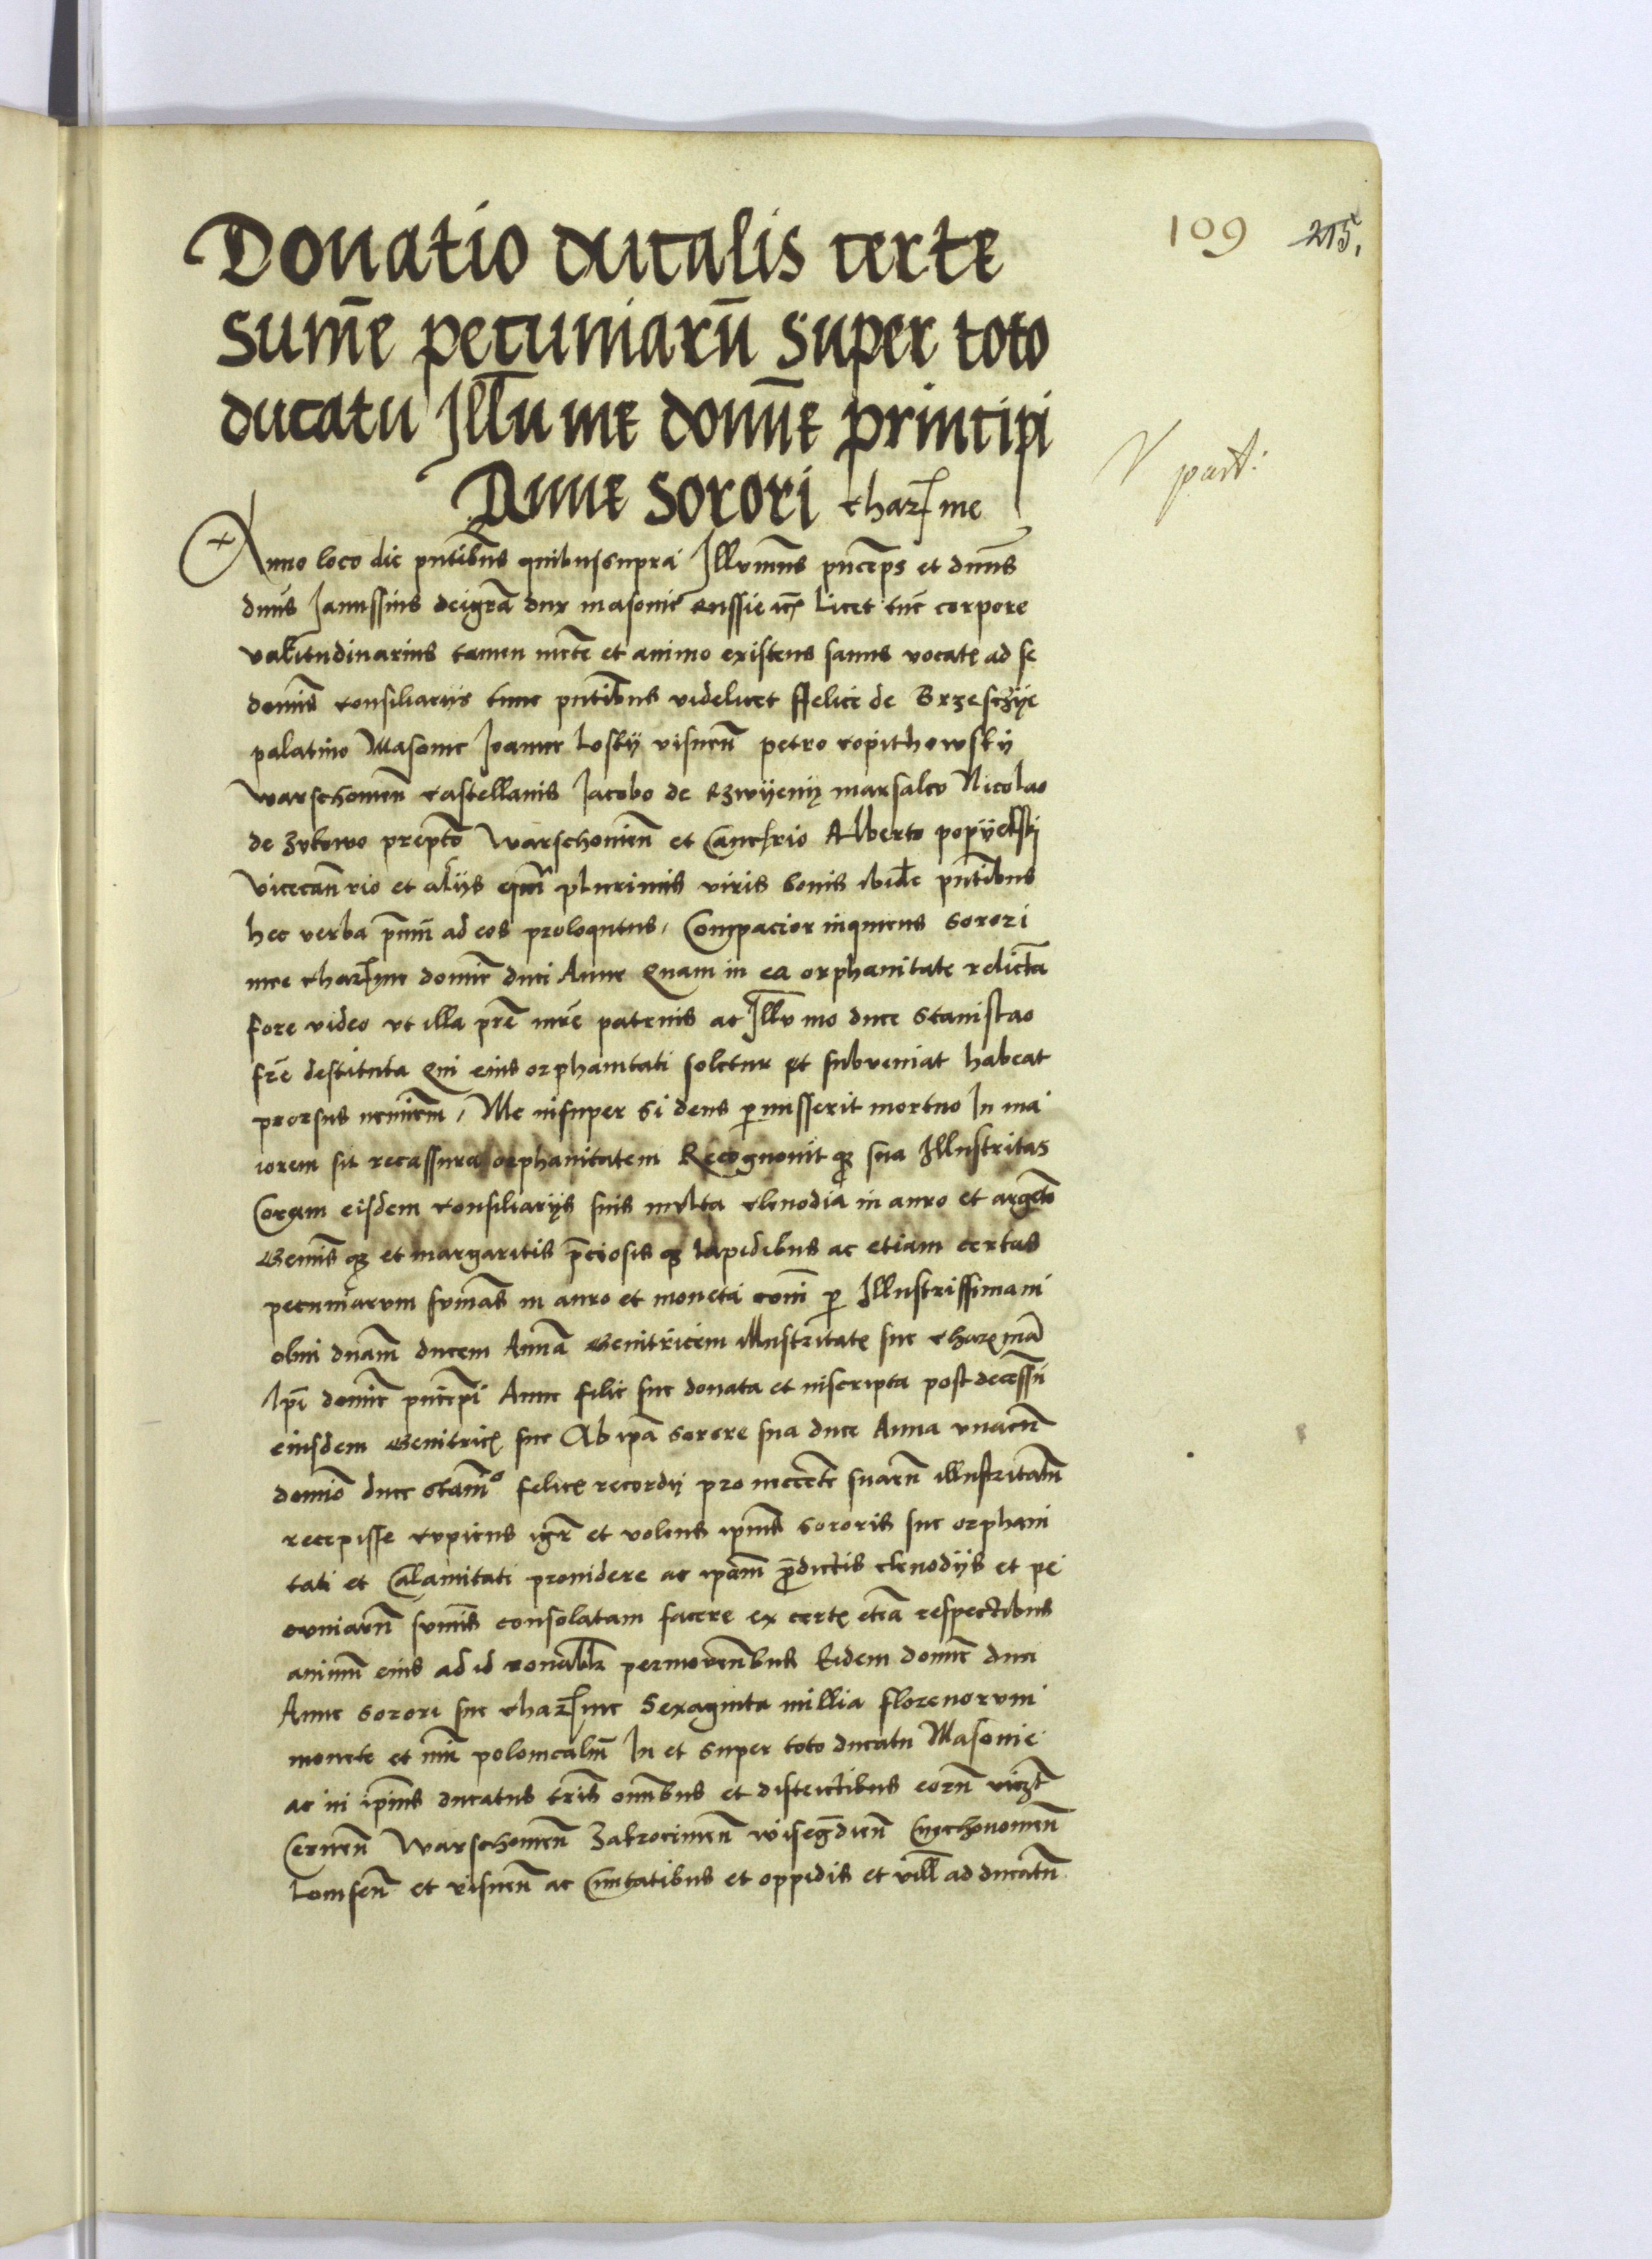 109 215.
Donatio ducalis certe
sum̄e pecuniarū super toto
ducatu Illu me domn̄e principi
Anne sorori charme
V part:
Anno loco die pn̄tibus quibus supra Illumus pnceps et dnns
dnus Janussius dei gra dux masovie Russie Licet tūc corpore
valitudinarius tamen mēte et animo existens sanus vocatis ad se
domīs consiliariis tunc pn̄tibus videlicet ffelice de Brzeschÿe
palatino Masovie Joanne Losky visnen̄ petro copithowskÿ
warschovien̄ castellanis Jacobo de Rzwÿenÿ marsalco Nicolao
de zukowo preptō warschovien̄ et Cancrio Alberto popÿelski
vicecanrio et aliis quā plurimis viris bonis ibidē pn̄tibus
hec verba ad eos proloqutus, Compacior inquiens sorori
mee charme domīe duci Anne Quam in ea orphanitate relictā
fore video ut illa prē mrē patruis ac Illu mo duce Stanislao
frē destituta Qui eius orphanitati soletur et subveniat habeat
prorsus neminem, Me insuper si deus permisserit mortuo In ma
iorem sit recassura orphanitatem Recognovit sua Illustritas
Coram eisdem consiliariis suis multa clenodia in auro et argeto
Gemis et margaritis p̄ciosis lapidibus ac etiam certas
pecuniarum sumas in auro et moneta per Illustrissimam
olim dnam ducem Annā Genitricem illustritatis sue charmā
Ipi domīe pncipi Anne filie sue donata et inscripta post decessū
eiusdem Genitricis sue Ab ipa sorore sua duce Anna unacū
domīo duce felicis recordy pro necēte suarū illustritatū
recepisse cupiens igr et volens ipius sororis sue orphani
tati et Calamitati providere ac ipam predictis clenodÿs et pe
cuniarū sumis consolatam facere ex certis etiā respectibus
animū eius ad id permovenbus Eidem domīe duci
Anne sorori sue charme Sexaginta millia florenorum
monete et polonicaliū In et super toto ducatu Masovie
ac in ipius ducatus tris omībus et districtibus eorū
Cernen̄ warschovien̄ zakrocimen̄ wisegdien̄
Lomsen̄ et visnen̄ ac Civitatibus et oppidis et vill ad ducatū